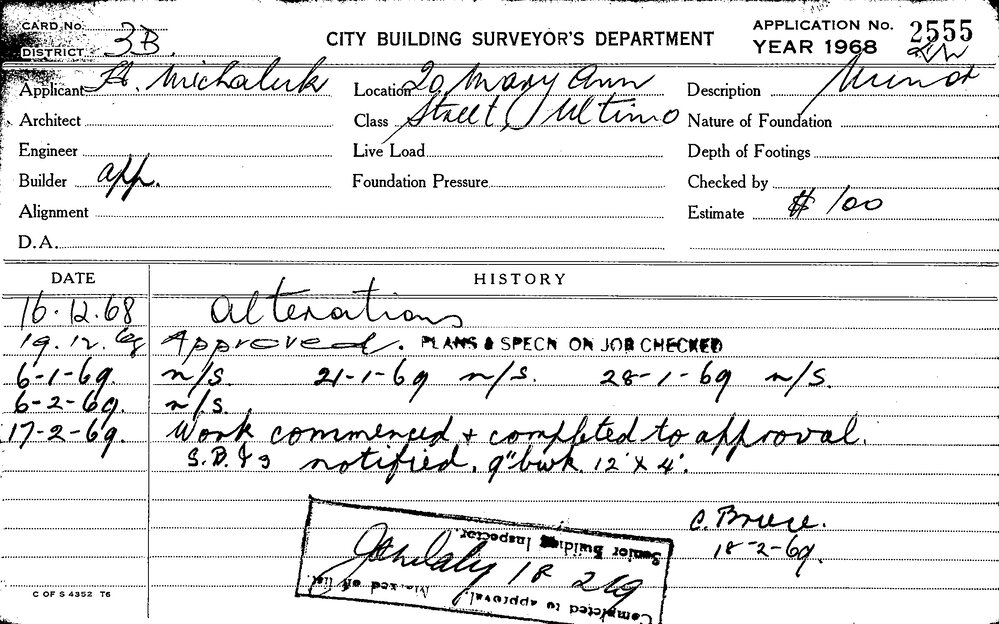 CARD No.
DISTRICT 3B.
CITY BUILDING SURVEYOR'S DEPARTMENT
APPLICATION No. 2555
YEAR 1968
Applicant H. Michaluk
Location 20 Mary Ann
Description Minor
Architect
Class Street, Ultimo
Nature of Foundation
Engineer
Live Load
Depth of Footings
Builder app.
Foundation Pressure
Checked by
Alignment
Estimate $ 100
D.A.
DATE HISTORY
16.12.68 Alterations
19.12.68 Approved. PLANS & SPECN ON JOB CHECKED
6-1-69. n/s. 21-1-69 n/s. 28-1-69 n/s.
6-2-69. n/s.
17-2-69. Work commenced & completed to approval.
notified. 9" bwk. 12' x 4'.
C. 
18-2-69.
Completed to approval. off list.
18 2 69
Senior Building Inspector.
C OF S 4352 T6